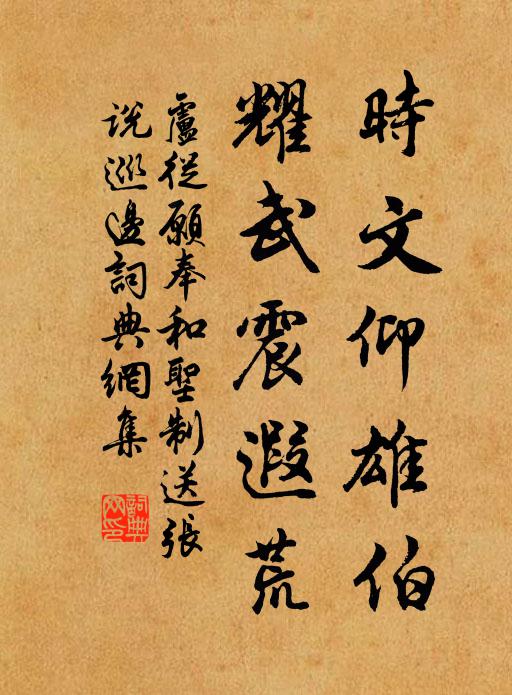 時文仰雄伯
耀武震遐荒
盧從願奉和聖制送張
說巡邊詞典網集
詞典網印